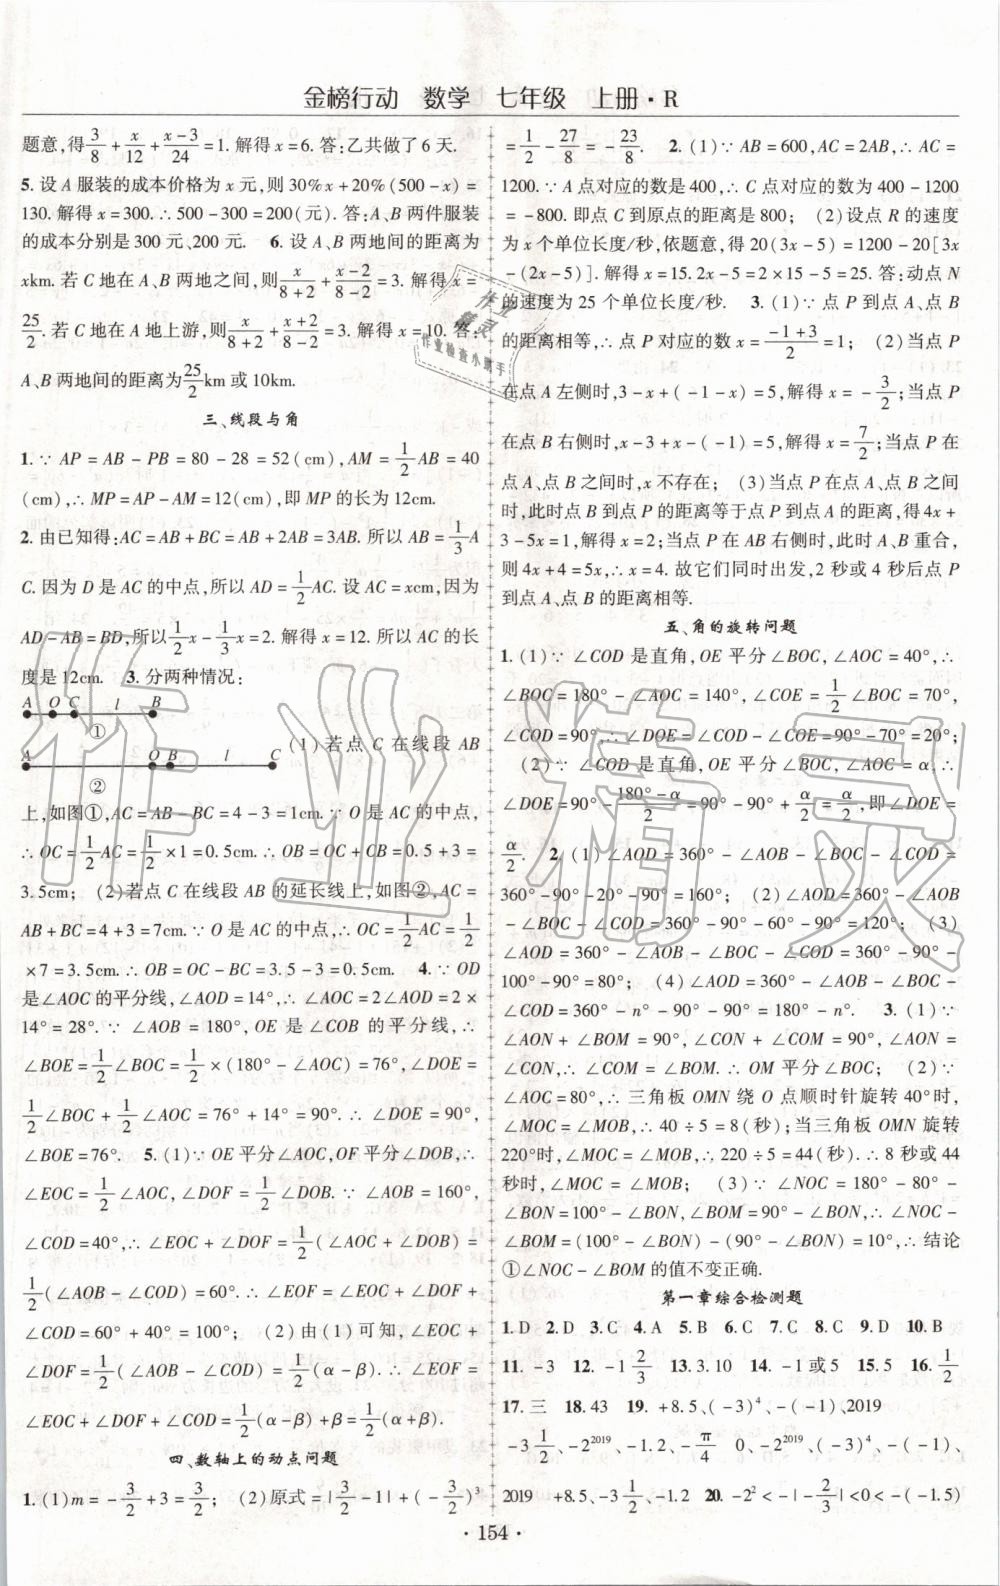 金榜行动 数学 七年级 上册·R
题意,得3/8+x/12+(x-3)/24=1. 解得 x=6. 答:乙共做了 6 天.
5. 设 A 服装的成本价格为 x 元,则 30%x+20%(500-x)=
130. 解得 x=300. ∴500-300=200(元). 答:A、B 两件服装
的成本分别是 300 元、200 元. 6. 设 A、B 两地间的距离为
xkm. 若 C 地在 A、B 两地之间,则x/(8+2)+(x-2)/(8-2)=3. 解得 x=
25/2. 若 C 地在 A 地上游,则x/(8+2)+(x+2)/(8-2)=3. 解得 x=10. 答:
A、B 两地间的距离为25/2km 或 10km.
三、线段与角
1. ∵ AP=AB-PB=80-28=52(cm),AM=1/2AB=40
(cm),∴MP=AP-AM=12(cm),即 MP 的长为 12cm.
2. 由已知得:AC=AB+BC=AB+2AB=3AB. 所以 AB=1/3A
C. 因为 D 是 AC 的中点,所以 AD=1/2AC. 设 AC=xcm,因为
AD-AB=BD,所以1/2x-1/3x=2. 解得 x=12. 所以 AC 的长
度是 12cm. 3. 分两种情况:
A O C l B
①
A O B l C
② (1) 若点 C 在线段 AB
上,如图①,AC=AB-BC=4-3=1cm. ∵O 是 AC 的中点,
∴OC=1/2AC=1/2×1=0.5cm. ∴OB=OC+CB=0.5+3=
3.5cm; (2)若点 C 在线段 AB 的延长线上,如图②,AC=
AB+BC=4+3=7cm. ∵O 是 AC 的中点,∴OC=1/2AC=1/2
×7=3.5cm. ∴OB=OC-BC=3.5-3=0.5cm. 4. ∵OD
是∠AOC的平分线,∠AOD=14°,∴∠AOC=2∠AOD=2×
14°=28°. ∵ ∠AOB=180°,OE 是∠COB 的平分线,∴
∠BOE=1/2∠BOC=1/2×(180°-∠AOC)=76°,∠DOE=
1/2∠BOC+1/2∠AOC=76°+14°=90°. ∴∠DOE=90°,
∠BOE=76°. 5. (1)∵OE平分∠AOC,OF平分∠DOB,∴
∠EOC=1/2∠AOC,∠DOF=1/2∠DOB. ∵ ∠AOB=160°,
∠COD=40°,∴∠EOC+∠DOF=1/2(∠AOC+∠DOB)=
1/2(∠AOB-∠COD)=60°. ∴∠EOF=∠EOC+∠DOF+
∠COD=60°+40°=100°; (2)由(1)可知,∠EOC+
∠DOF=1/2(∠AOB-∠COD)=1/2(α-β). ∴∠EOF=
∠EOC+∠DOF+∠COD=1/2(α-β)+β=1/2α+1/2β.
四、数轴上的动点问题
1. (1)m=-3/2+3=3/2; (2)原式=|3/2-1|+(-3/2)³
=1/2-27/8=-23/8. 2. (1)∵AB=600,AC=2AB,∴AC=
1200. ∵A 点对应的数是 400,∴C 点对应的数为 400-1200
=-800. 即点 C 到原点的距离是 800; (2)设点 R 的速度
为 x 个单位长度/秒,依题意,得 20(3x-5)=1200-20[3x
-(2x-5)]. 解得 x=15. 2x-5=2×15-5=25. 答:动点 N
的速度为 25 个单位长度/秒. 3. (1)∵点 P 到点 A、点 B
的距离相等,∴点 P 对应的数=(-1+3)/2=1; (2)当点 P
在点 A 左侧时,3-x+(-1-x)=5,解得 x=-3/2;当点 P
在点 B 右侧时,x-3+x-(-1)=5,解得 x=7/2;当点 P 在
点 A、点 B 之间时,x 不存在; (3)当点 P 在点 A、点 B 之间
时,此时点 B 到点 P 的距离等于点 P 到点 A 的距离,得 4x+
3-5x=x,解得 x=2;当点 P 在 AB 右侧时,此时 A、B 重合,
则 4x+4=5x,∴x=4. 故它们同时出发,2 秒或 4 秒后点 P
到点 A、点 B 的距离相等.
五、角的旋转问题
1. (1)∵ ∠COD 是直角,OE 平分∠BOC,∠AOC=40°,∴
∠BOC=180°-∠AOC=140°,∠COE=1/2∠BOC=70°,
∠COD=90°,∴∠DOE=∠COD-∠COE=90°-70°=20°;
(2)∵∠COD 是直角,OE 平分∠BOC,∠AOC=α,∴
∠DOE=90°-(180°-α)/2=90°-90°+α/2=α/2,即∠DOE=
α/2. 2. (1)∠AOD=360°-∠AOB-∠BOC-∠COD=
360°-90°-20°-90°=160°; (2)∠AOD=360°-∠AOB
-∠BOC-∠COD=360°-90°-60°-90°=120°; (3)
∠AOD=360°-∠AOB-∠BOC-∠COD=360°-90°-
90°-90°=90°; (4)∠AOD=360°-∠AOB-∠BOC-
∠COD=360°-n°-90°-90°=180°-n°. 3. (1)∵
∠AON+∠BOM=90°,∠COM=∠CON+∠AON=
∠CON,∴∠COM=∠BOM. ∴OM 平分∠BOC; (2)∵
∠AOC=80°,∴三角板 OMN 绕 O 点顺时针旋转 40°时,
∠MOC=∠MOB,∴40÷5=8(秒);当三角板 OMN 旋转
220°时,∠MOC=∠MOB,∴220÷5=44(秒). ∴8 秒或 44
秒时,∠MOC=∠MOB; (3)∵∠NOC=180°-80°-
∠BON=100°-∠BON,∠BOM=90°-∠BON,∴∠NOC
-∠BOM=(100°-∠BON)-(90°-∠BON)=10°,∴结论
①∠NOC-∠BOM 的值不变正确.
第一章综合检测题
1. D 2. D 3. C 4. A 5. B 6. C 7. C 8. C 9. D 10. B
11. -3 12. -1 2/3 13. 3.10 14. -1或5 15. 5 16. 1/2
17. 三 18. 43 19. +8.5、(-3)⁴、-(-1)、2019
-3 1/2、-2²⁰¹⁹、-1.2、-π/4 0、-2²⁰¹⁹、(-3)⁴、-(-1)、
2019 +8.5、-3 1/2、-1.2 20. -2²<-|-2/3|<0<-(-1.5)
· 154 ·
作业精灵
作业检查小帮手
作业精灵